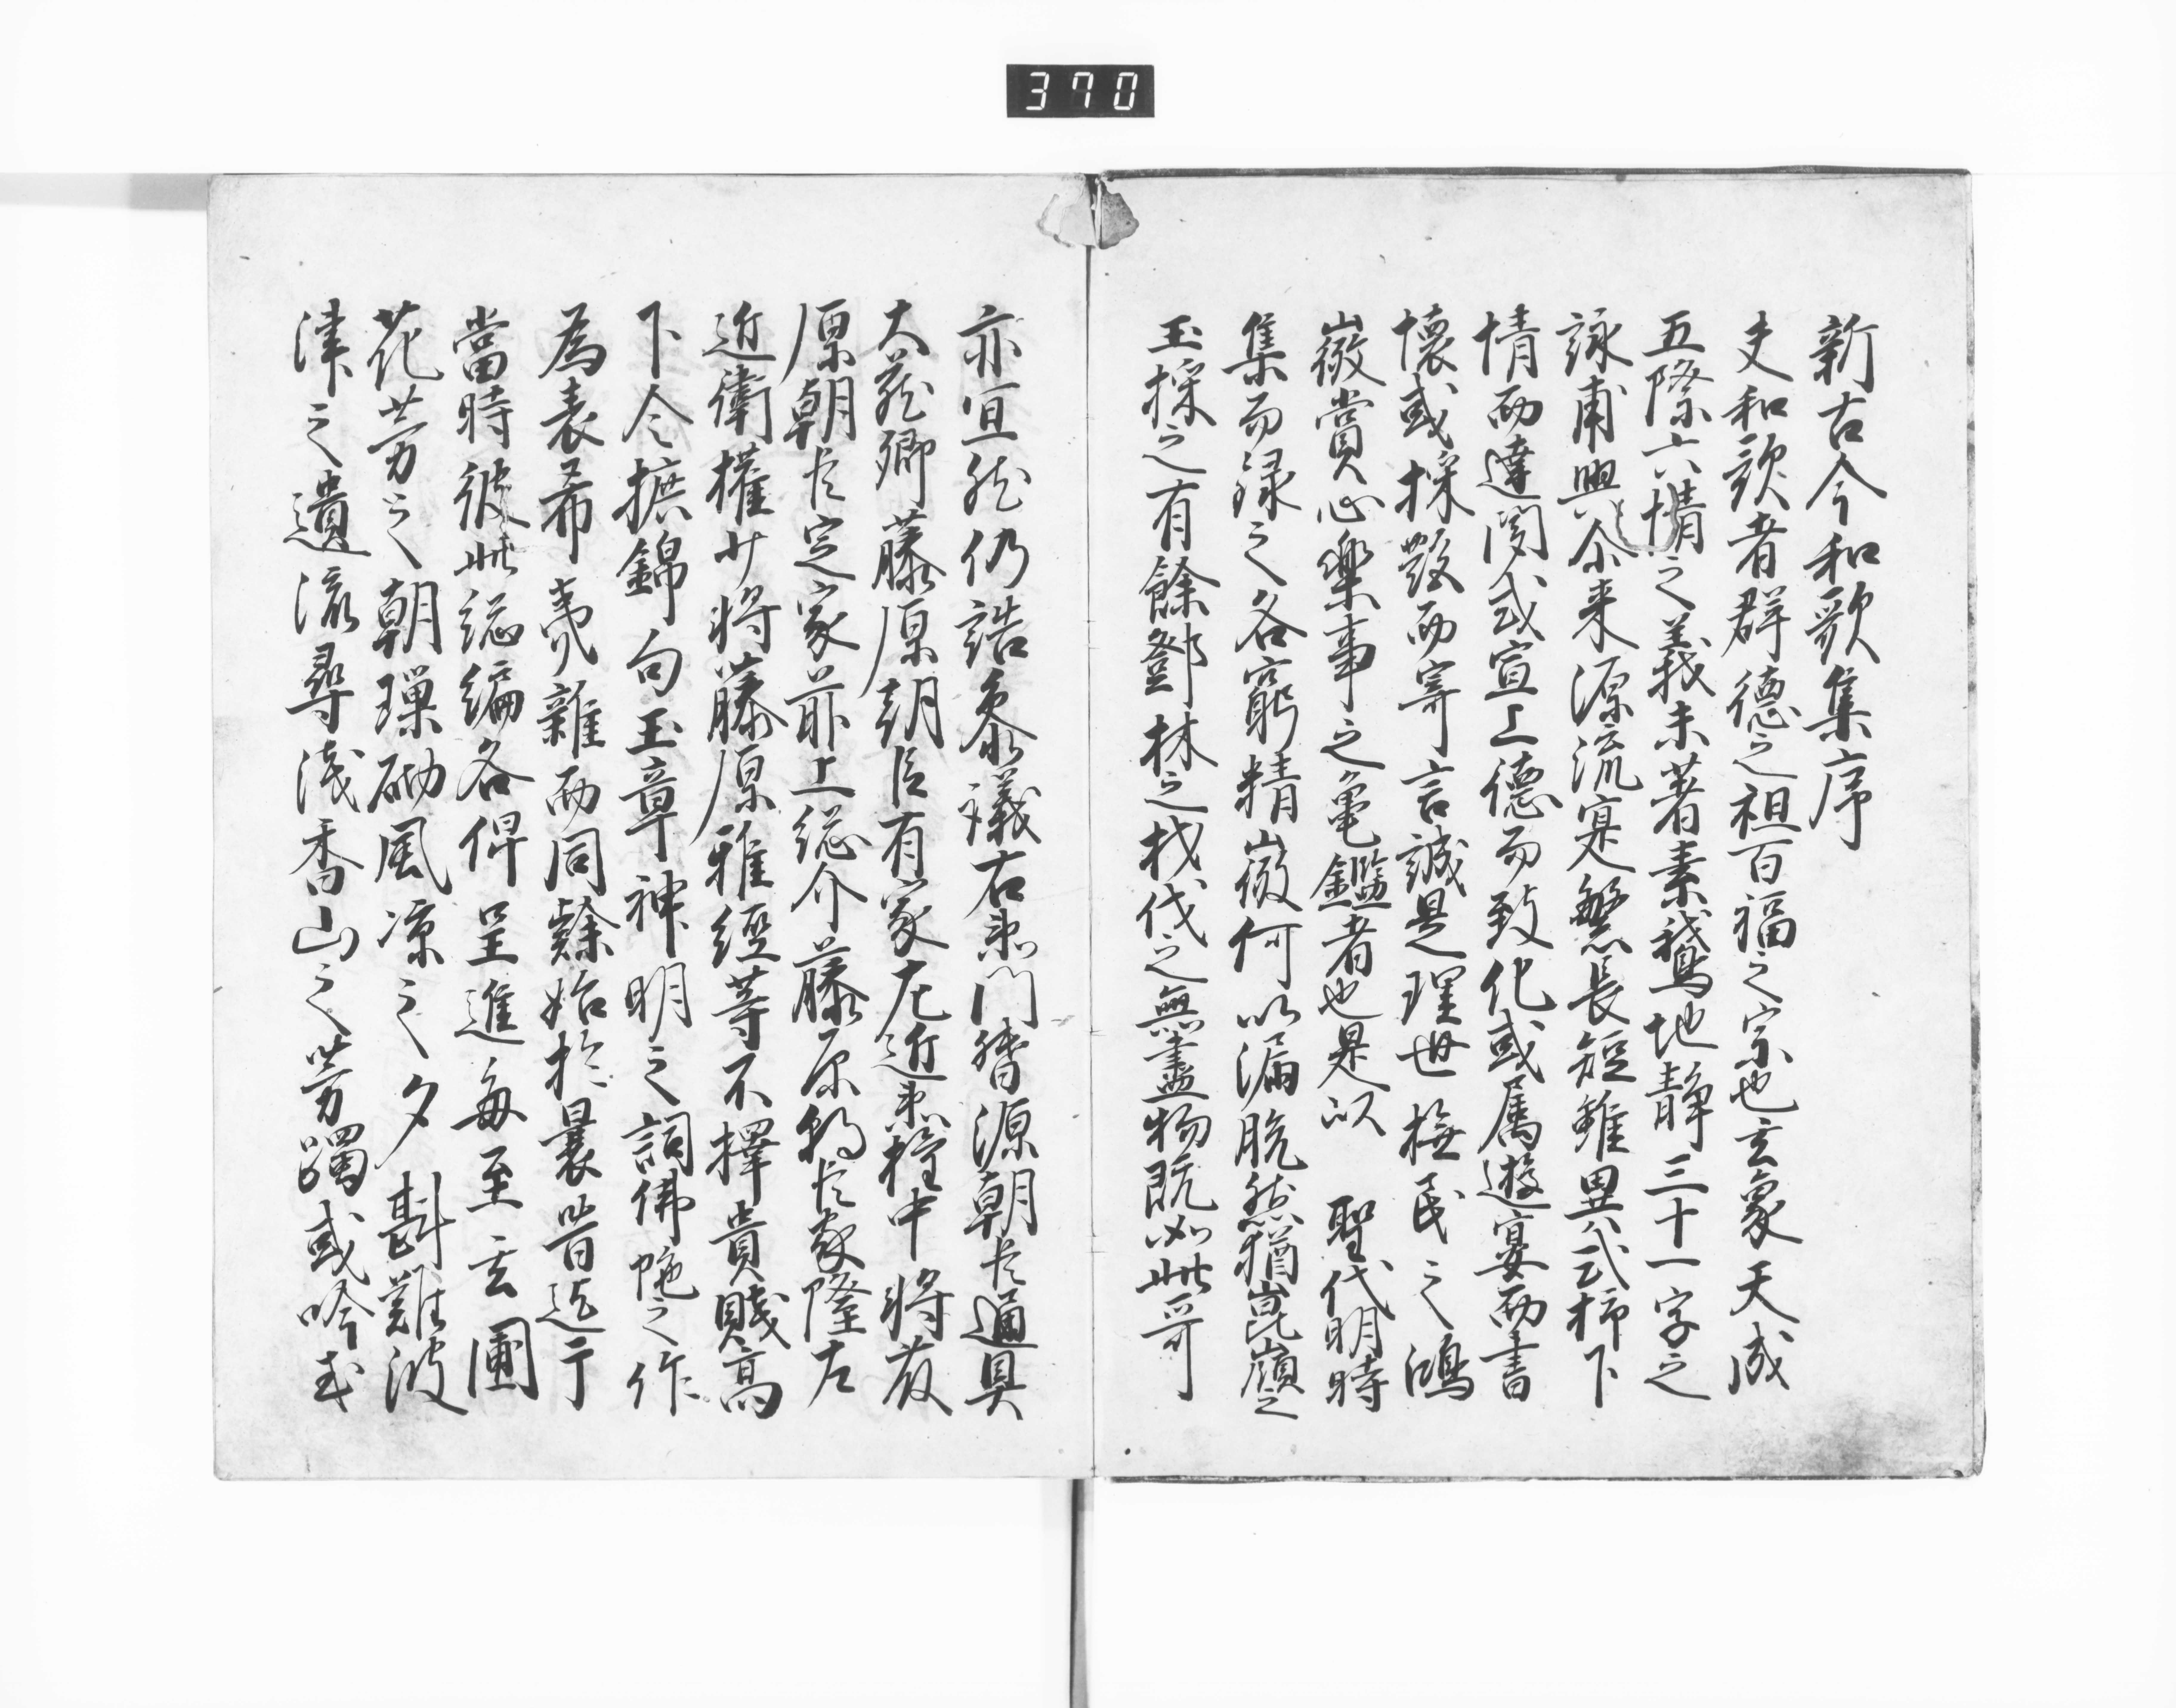 370
新古今和歌集序
夫和歌者群徳之祖百福之宗也玄象天成
五際六情之義未著素鵞地静三十一字之
詠甫興尓来源流寔繁長短雖異或抒下
情而達聞或宣上徳而致化或属遊宴而書
懐或採艶而寄言誠是理世撫民之鴻
徽賞心楽事之亀鑑者也是以 聖代明時
集而録之各窮精微何以漏脱然猶崑嶺之
玉採之有餘鄧林之材伐之無盡物既如此哥
亦宜然仍詔参議右衛門督源朝臣通具
大蔵卿藤原朝臣有家左近衛権中将藤
原朝臣定家前上総介藤原朝臣家隆左
近衛権少将藤原雅経等不擇貴賤高
下令摭錦句玉章神明之詞佛陁之作
為表希夷雑而同隷始於曩昔迄于
當時彼此総編各俾呈進毎至玄圃
花芳之朝璅砌風凉之夕斟難波
津之遺流尋浅香山之芳躅或吟或